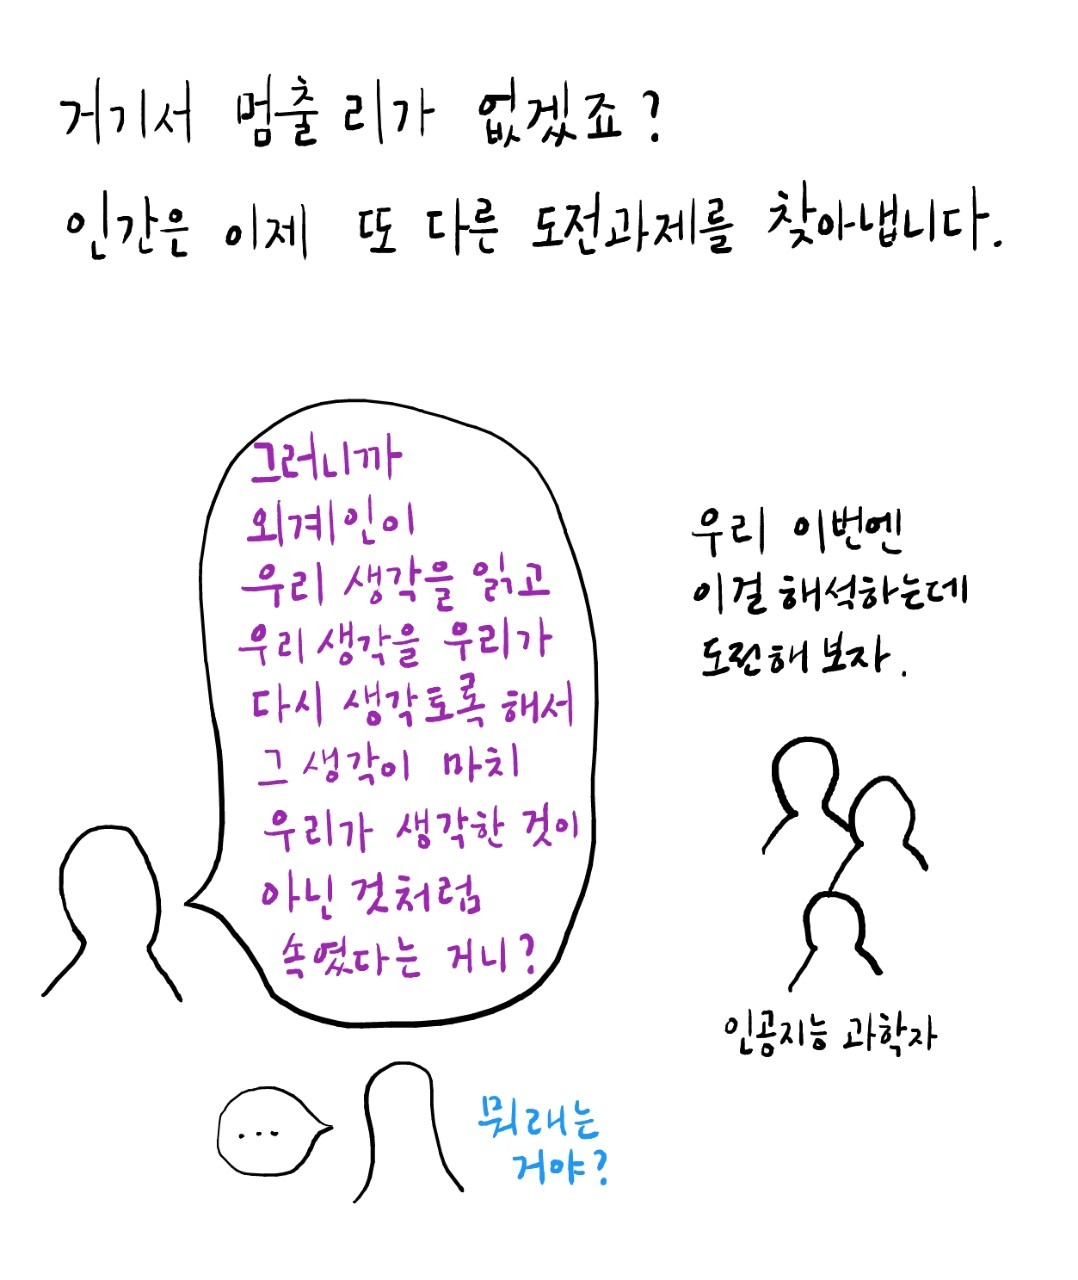 거기서 멈출 리가 없겠죠?
인간은 이제 또 다른 도전과제를 찾아냅니다.
그러니까
외계인이
우리 생각을 읽고
우리 생각을 우리가
다시 생각토록 해서
그 생각이 마치
우리가 생각한 것이
아닌 것처럼
속였다는 거니?
우리 이번엔
이걸 해석하는데
도전해 보자.
인공지능 과학자
...
뭐래는
거야?